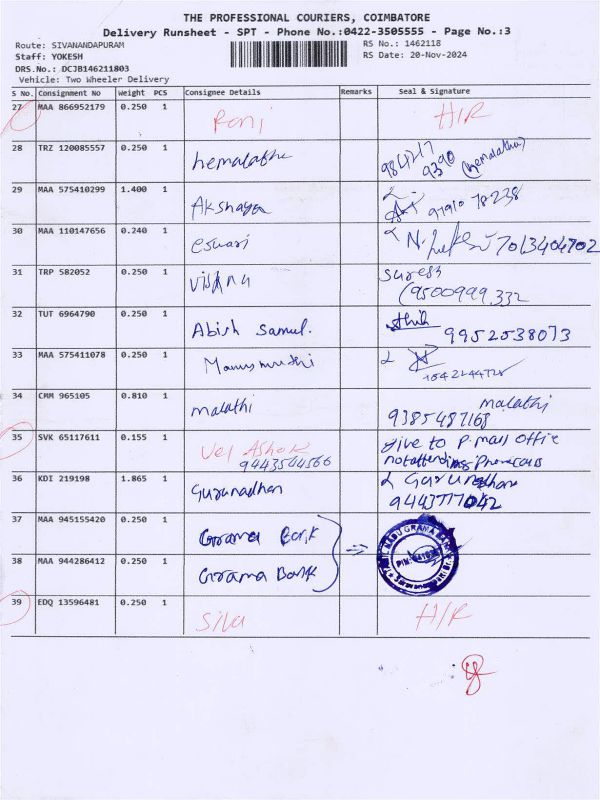 THE PROFESSIONAL COURIERS, COIMBATORE
Delivery Runsheet - SPT - Phone No.:0422-3505555 - Page No.:3
Route: SIVANANDAPURAM
RS No.: 1462118
Staff: YOKESH
RS Date: 20-Nov-2024
DRS.No.: DCJB146211803
Vehicle: Two Wheeler Delivery
S No. Consignment No Weight PCS Consignee Details Remarks Seal & Signature
27 MAA 866952179 0.250 1 Rani H/R
28 TRZ 120085557 0.250 1 hemalatha 984217
9390 (hemalatha)
29 MAA 575410299 1.400 1 Akshaya 97910 78238
30 MAA 110147656 0.240 1 eswari 7013404702
31 TRP 582052 0.250 1 Vishnu Suresh
(9500999332
32 TUT 6964790 0.250 1 Abish Samul. 9952538073
33 MAA 575411078 0.250 1
34 CMM 965105 0.810 1 malathi malathi
9385487168
35 SVK 65117611 0.155 1 Vel Ashok Give to P. mall Office
9443564566 not attending Phone calls
36 KDI 219198 1.865 1 Gurunadhan Gurunadhan
9443777042
37 MAA 945155420 0.250 1 Grama Bank
38 MAA 944286412 0.250 1 Grama Bank
39 EDQ 13596481 0.250 1 Siva H/R